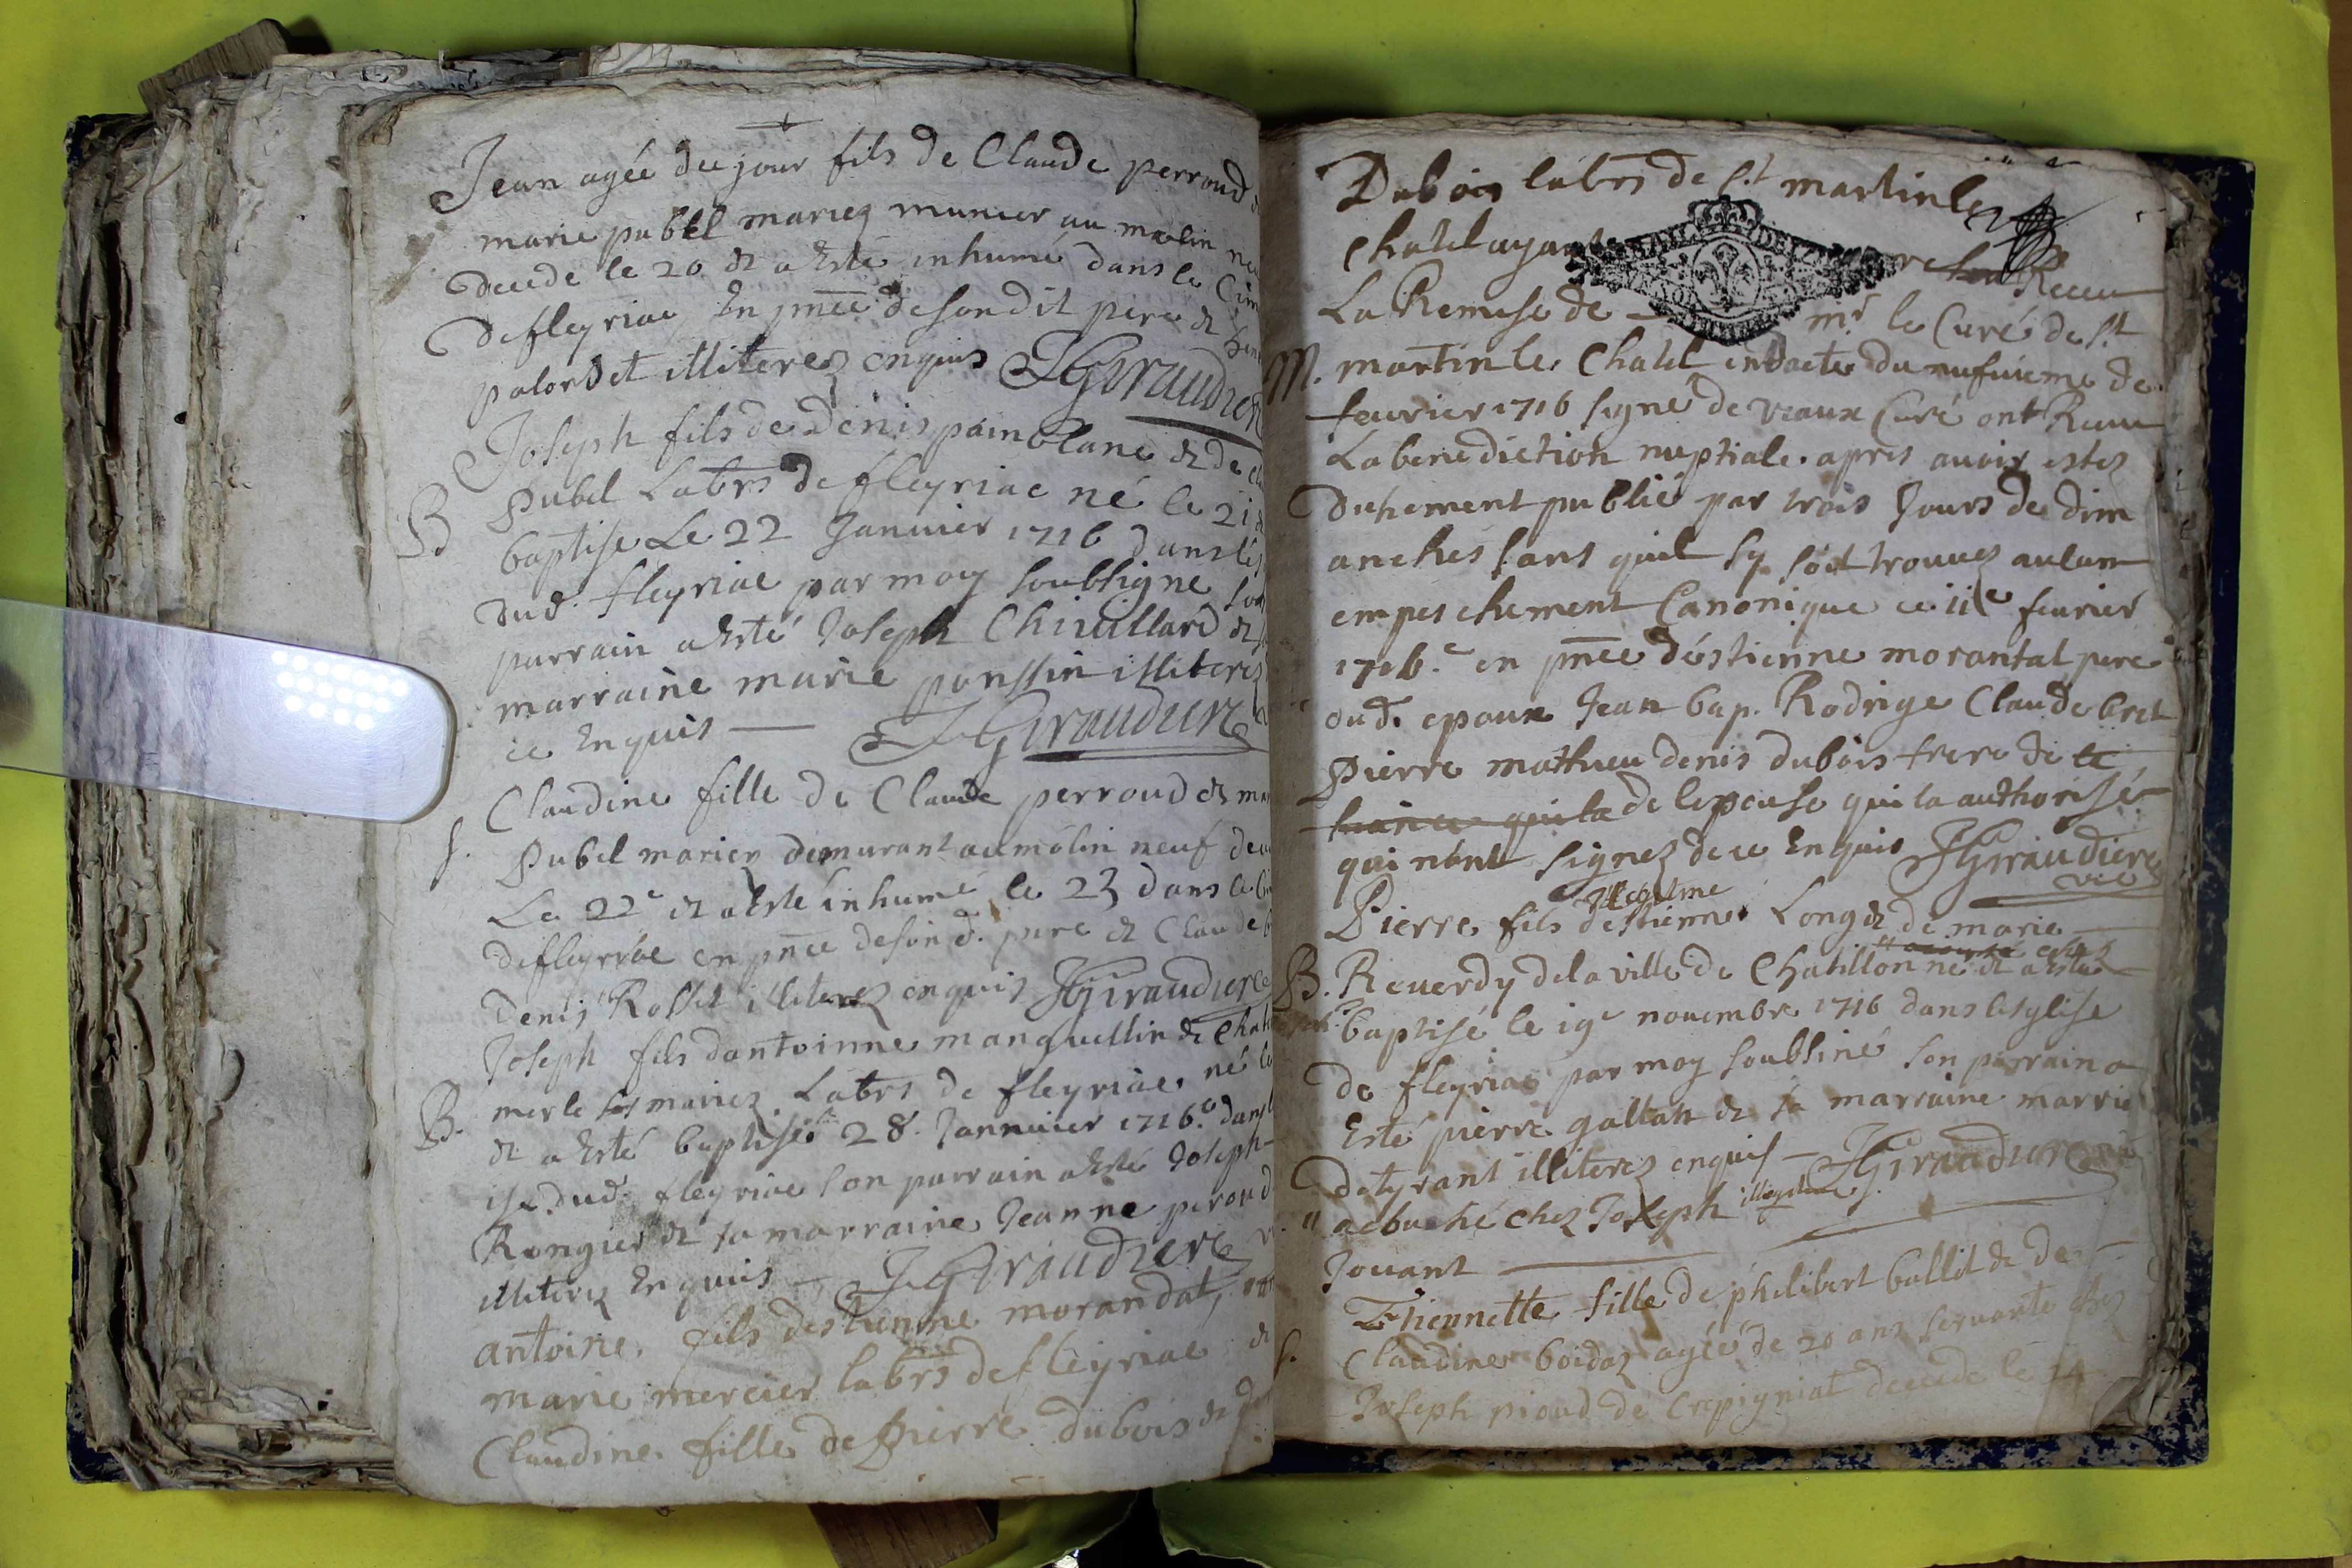 Jean agée du jour fils de Claude perroud
marie pubel mariez munier au molin
decede le 20 & a esté inhumé dans le Cim
de fleyriac, En pñce de son dit pere &
palordet illiterez enquis JGiraudier
Joseph fils de Denis pain blanc & de
B Pubel Labrs de fleyriac né le 21
baptise Le 22 Januier 1716 dans
dud. fleyriac par moy soubsigne
parrain a esté Joseph Chiuillard &
marraine marie ponssin illiterez
ce Enquis — JGiraudiere
Claudine fille de Claude perroud &
S. Pubel mariez demurant au molin neuf
Le 22e & a esté inhumé le 23 dans le
de fleyriac en pñce de son d. pere & Claude
Denis Rosset illiterez enquis JGiraudiere
Joseph fils dantoinne manguellin &
B. merle mariez Labrs de fleyriac né
& a esté baptisé 28. Jannuier 1716. dans
dud. fleyriac son parrain a esté Joseph
Rongier & sa marraine Jeanne peroud
illiterez Enquis — JGiraudiere
antoine fils destienne morandat,
marie mercier labrs de fleyriac &
Claudine fille de Pierre dubois &
Dubois labrs de St martin le
Chatel ayant Receu
La Remise de — mr le Curé de St
M. martin le Chatel en dacte du neufuieme de
feurier 1716 signé de veaux Curé ont Receu
La benediction nuptiale apres auoir estez
duhement publié par trois Jours de dim
anches sans quil sy soit trouuez aulcun
empeschement Canonique ce 11e feurier
1716.e en pñce déstienne morantat pere
dud. epoux Jean bap. Rodrige Claude bret
Pierre mathieu denis dubois frere de
de lepouse qui la authorisé
qui nont signez de ce Enquis JGiraudiere
vic
Pierre fils destienne Long & de marie
B. Reuerdy de la ville de Chatillon né & a esté
baptisé le 19e nouembre 1716 dans lesglise
de fleyriac par moy soubsiné son parrain a
Esté pierre gallan & sa marraine marrie
detyrant illiterez enquis — JGiraudiere
" acouché chez Joseph
Jouant —
Etiennette fille de philibert ballet & de
S. Claudine boidaz agée de 20 ans seruante chez
Joseph pioud de Crepigniat decede le 14